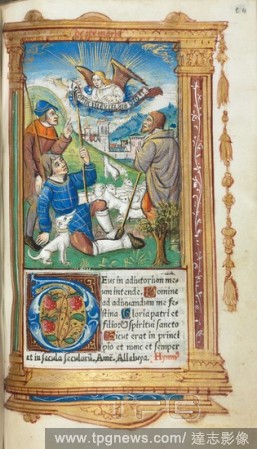 Eus in adiutorium me
um intende. Domine
ad adiuuandum me fe
stina Gloria patri et
filio et spiritui sancto
Sicut erat in princi
pio et nunc et semper
et in secula seculorū. Amē. Alleluya. Hymnꝰ
www.tpgnews.com / 達志影像